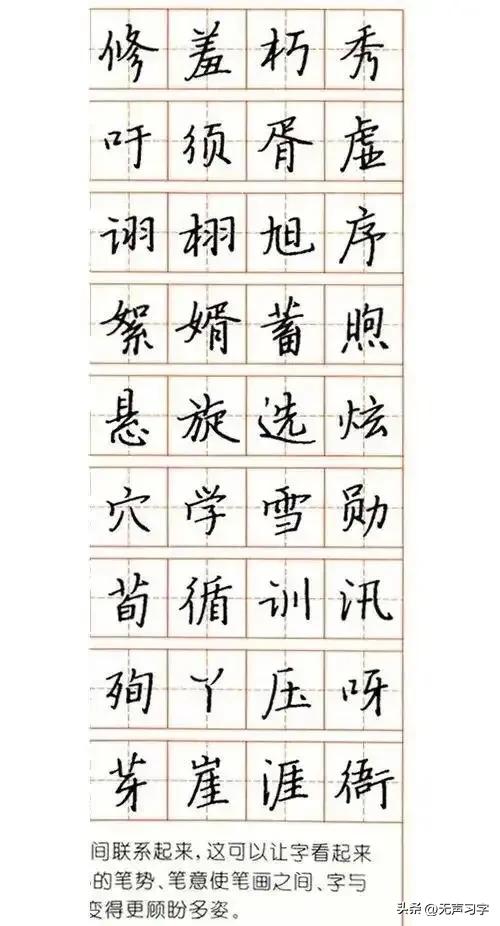 修 羞 朽 秀
吁 须 胥 虚
诩 栩 旭 序
絮 婿 蓄 煦
悬 旋 选 炫
穴 学 雪 勋
荀 循 训 汛
殉 丫 压 呀
芽 崖 涯 衙
间联系起来，这可以让字看起来
的笔势、笔意使笔画之间、字与
变得更顾盼多姿。
头条 @无声习字